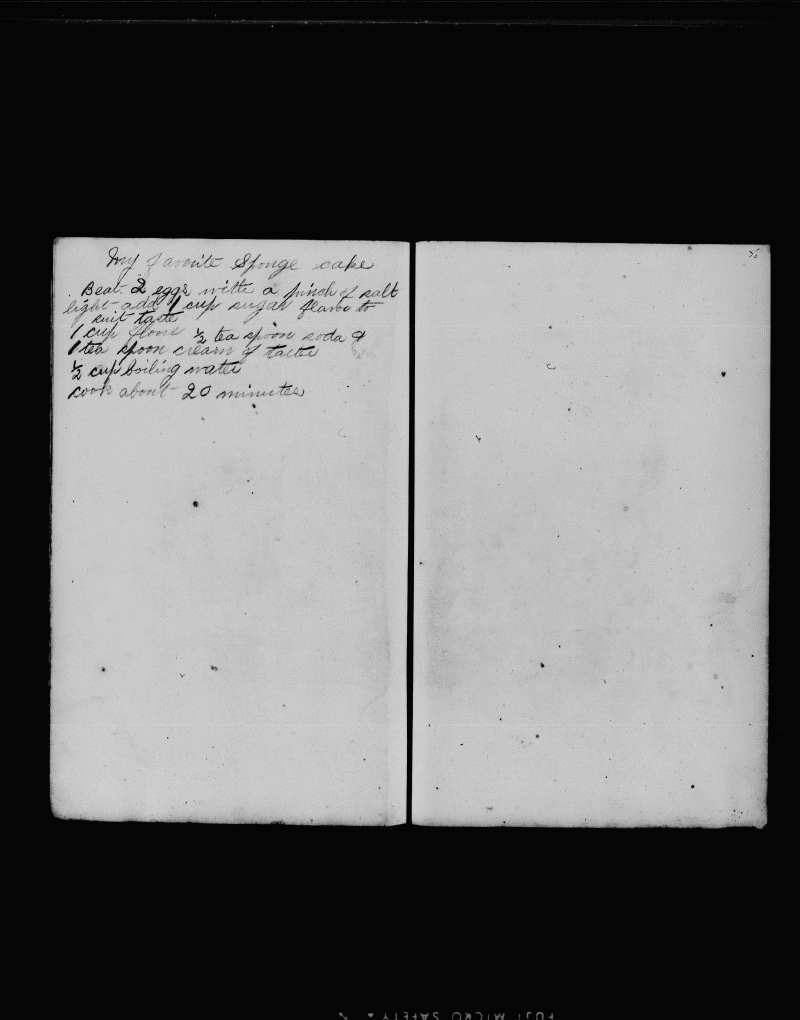 My favorite Sponge cake
Beat 2 eggs with a pinch of salt
light add 1 cup sugar flavor to
suit taste
1 cup flour ½ tea spoon soda &
1 tea spoon cream of tarter
½ cup boiling water
cook about 20 minutes
FUJI MICRO SAFETY